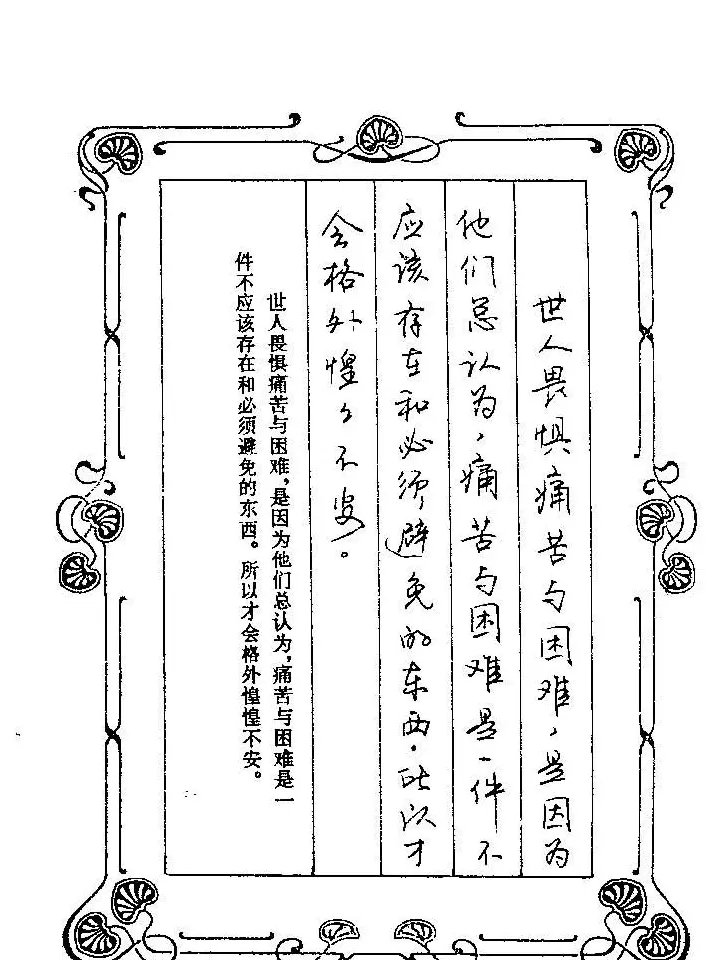 世人畏惧痛苦与困难，是因为
他们总认为，痛苦与困难是一件不
应该存在和必须避免的东西。所以才
会格外惶々不安。
世人畏惧痛苦与困难，是因为他们总认为，痛苦与困难是一
件不应该存在和必须避免的东西。所以才会格外惶惶不安。